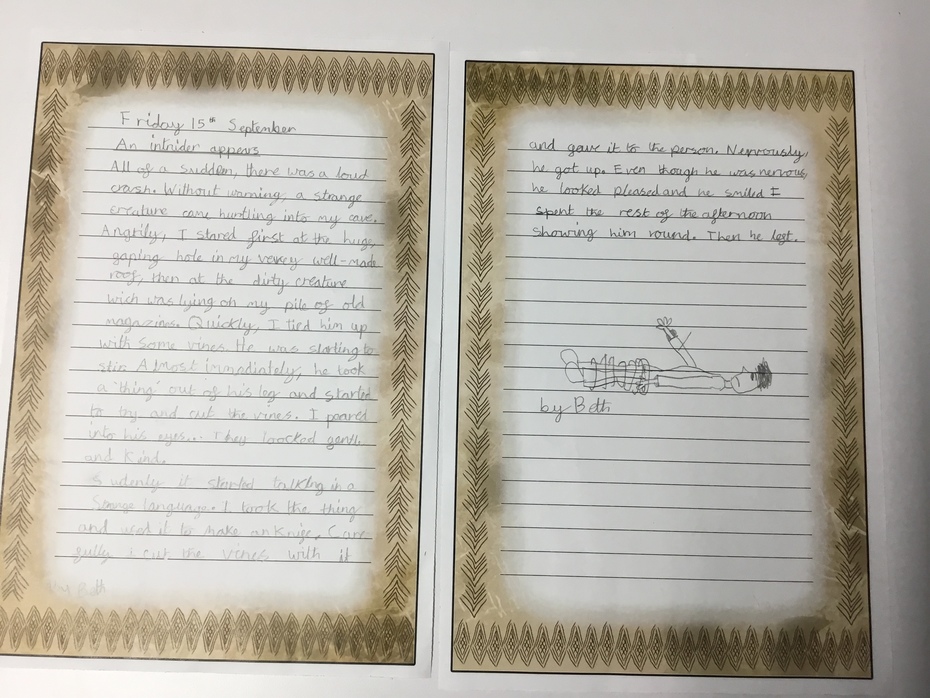 Friday 15th September
An intrider appears
All of a sudden, there was a loud
crash. Without warning, a strange
creature came hurtling into my cave.
Angrily, I stared first at the huge,
gaping hole in my verey well-made
roof, then at the dirty creature
wich was lying on my pile of old
magazines. Quickly, I tied him up
with some vines. He was starting to
stir. Almost immediately, he took
a 'thing' out of his leg and started
to try and cut the vines. I peared
into his eyes... They loocked gentl
and kind.
Sudenly it started talking in a
Strange language. I took the thing
and used it to make an knife. Care
fully i cut the vines with it
by Beth
and gave it to the person. Nervously,
he got up. Even though he was nervous,
he looked pleased and he smiled I
spent the rest of the afternoon
showing him round. Then he left.
by Beth